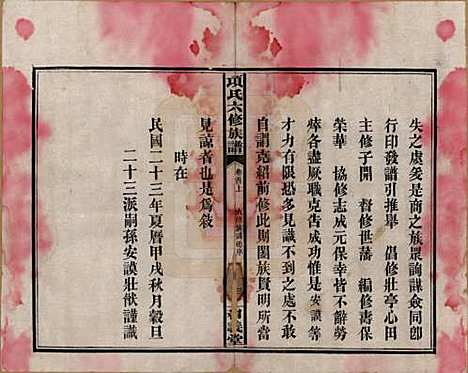 失之虞爰是商之族眾詢謀僉同卽
行印發譜引推舉　倡修壯亭心田
主修子開　督修世藩　編修壽保
榮華　協修志成元保幸皆不辭勞
瘁各盡厥職克告成功惟是安謨等
才力有限恐多見識不到之處不敢
自謂克紹前修此則闔族賢明所當
項氏六修族譜
卷首上
見諒者也是爲敘
時在
民國二十三年夏曆甲戌秋月穀旦
二十三派嗣孫安謨壯猷謹識